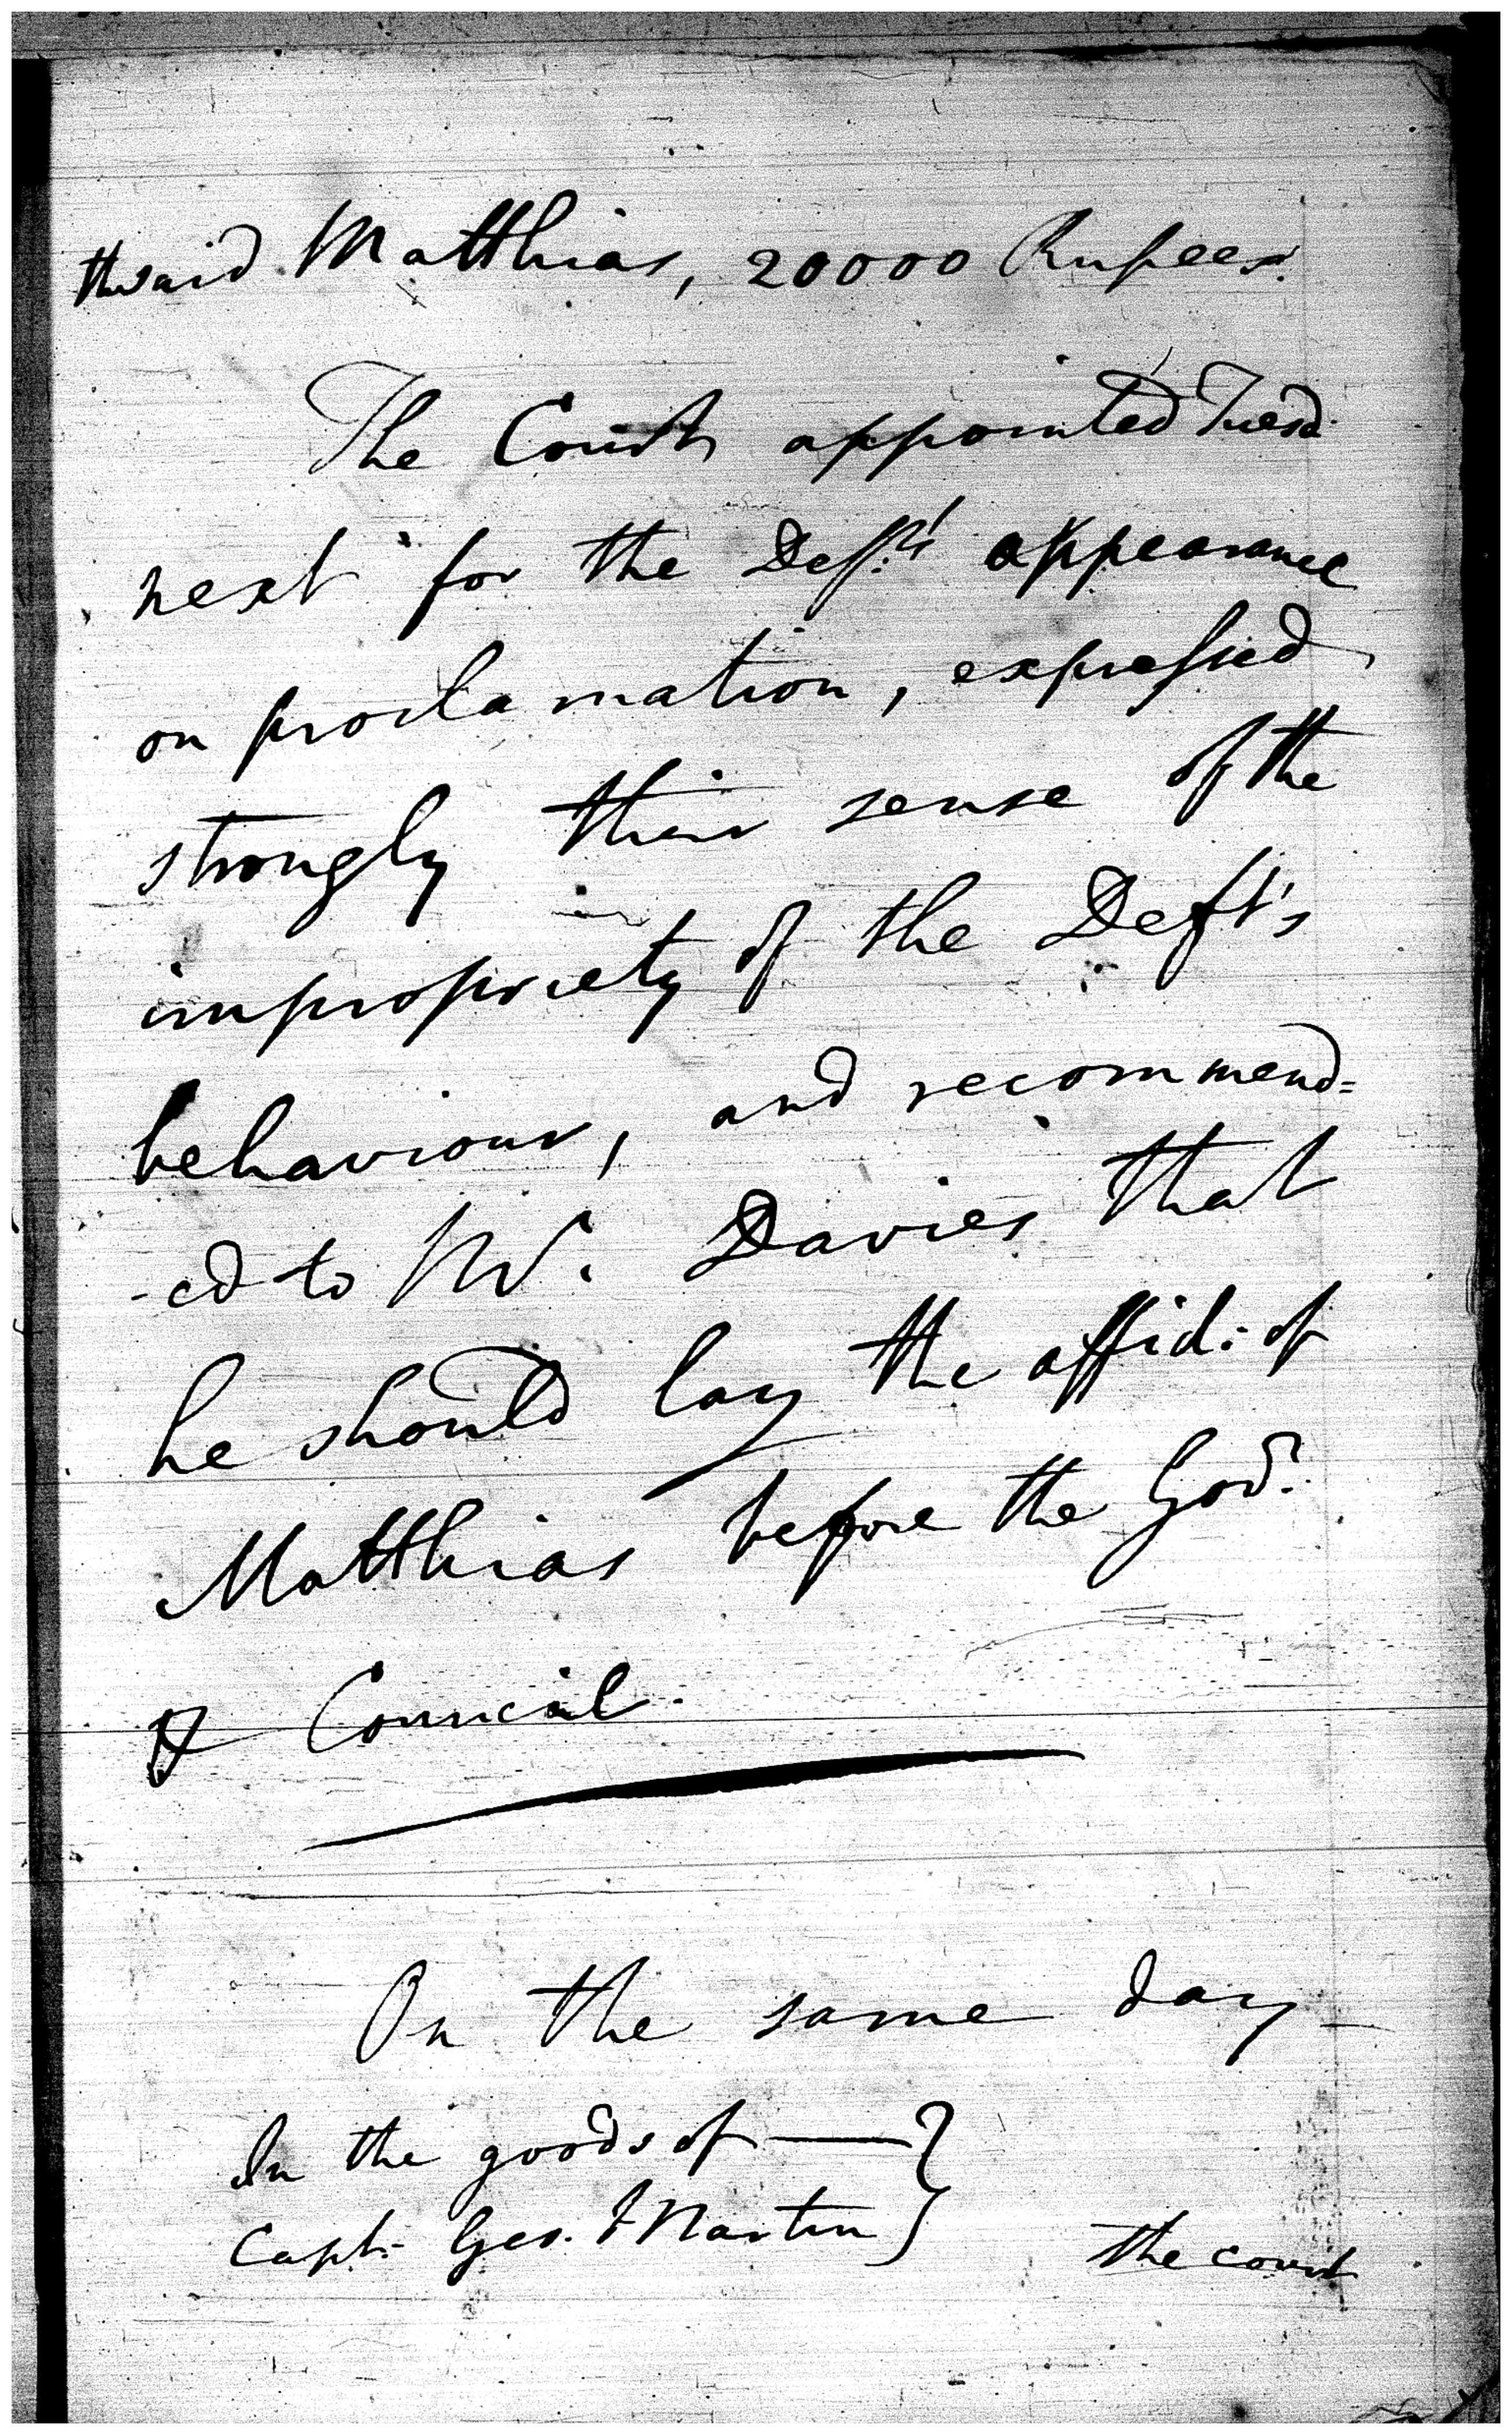 thesaid Matthias, 20000 Rupees.
The Court appointed Tuesd.
next for the Deft's appearance
on proclamation, expressed
strongly their sense of the
impropriety of the Deft's
behaviour, and recommend=
-ed to Mr. Davies that
he should lay the affid: of
Matthias before the Govr.
& Council.
On the same day
In the goods of —
Capt. Geo. Martin
the court